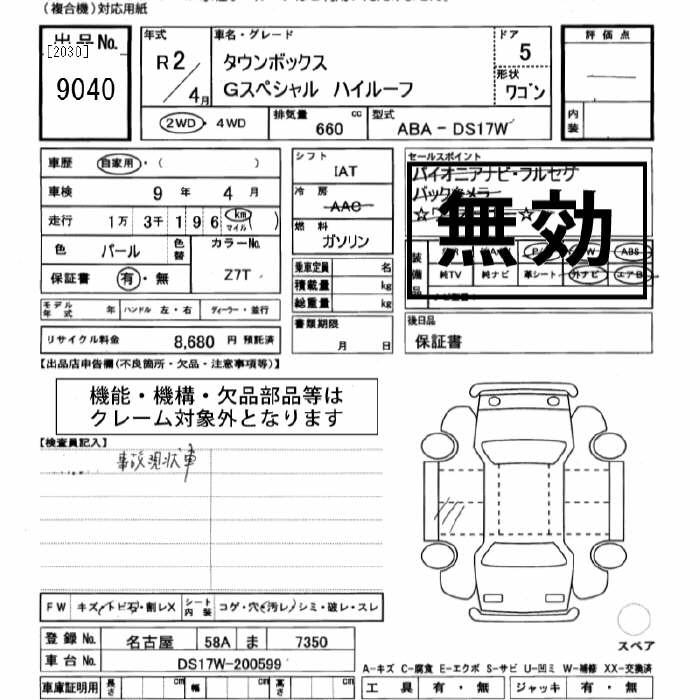 (複合機)対応用紙
出品No.
[2030]
9040
年式
R2/4月
車名・グレード
タウンボックス
Gスペシャル ハイルーフ
ドア
5
形状
ワゴン
評価点
内装
2WD・4WD
排気量
660
cc
型式
ABA-DS17W
車歴
自家用・( )
車検
9年4月
走行
1万3千196km
マイル
色
パール
色替
カラーNo.
Z7T
保証書
有・無
モデル年式
年
ハンドル 左・右
ディーラー・並行
リサイクル料金
8,680円 預託済
シフト
IAT
冷房
AAC
燃料
ガソリン
乗車定員
名
積載量
kg
総重量
kg
書類期限
月 日
セールスポイント
パイオニアナビ・フルセグ
バックカメラ
無効
装備品
ABS
純TV
純ナビ
革シート
外ナビ
エアB
後日品
保証書
【出品店申告欄(不良箇所・欠品・注意事項等)】
機能・機構・欠品部品等は
クレーム対象外となります
【検査員記入】
事故現状車
FW
キズ・トビ石・割レX
シート内装
コゲ・穴・汚レ・シミ・破レ・スレ
スペア
登録No.
名古屋
58A
ま
7350
車台No.
DS17W-200599
A-キズ C-腐食 E-エクボ S-サビ U-凹ミ W-補修 XX-交換済
車庫証明用
長さ
cm
幅
cm
高さ
cm
工具
有・無
ジャッキ
有・無